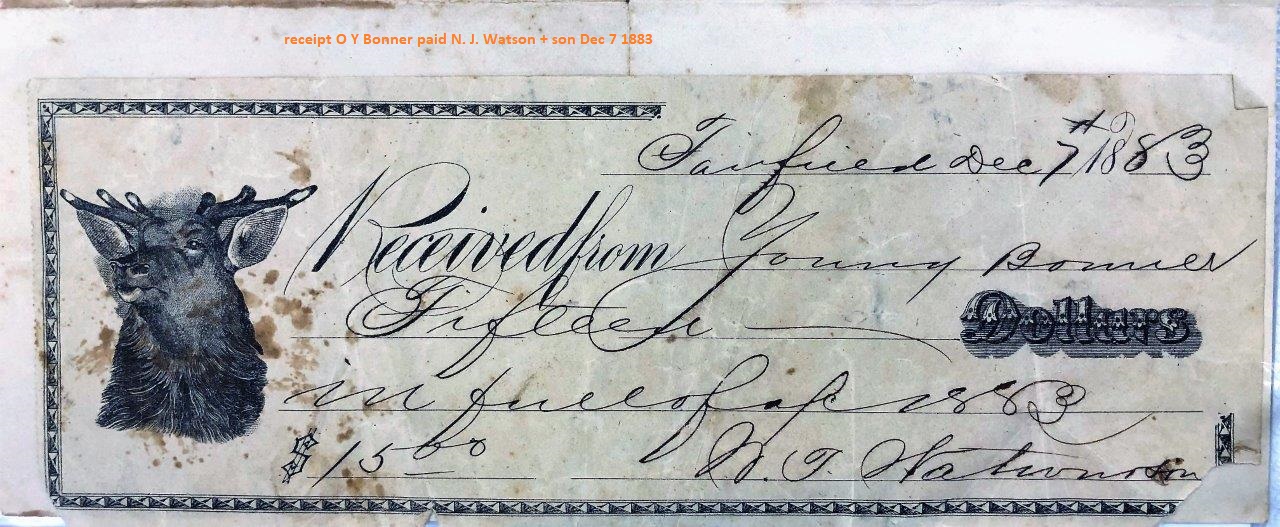 receipt O Y Bonner paid N. J. Watson + son Dec 7 1883
Fairfield Dec 7 1883
Received from Young Bonner
Fifteen Dollars
in full of a/c 1883
$15.00 N. J. Watson & son